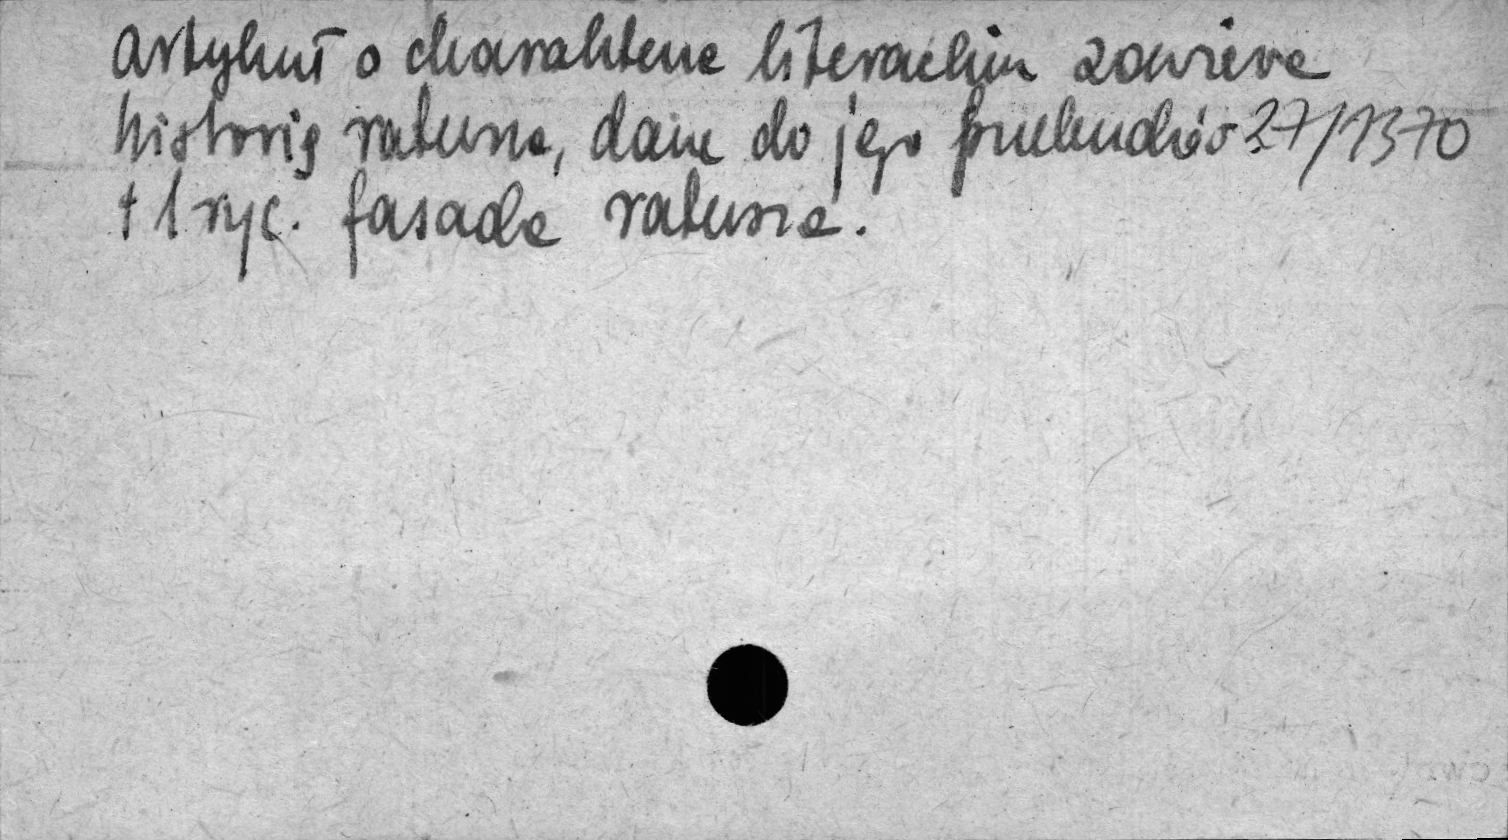 Artykuł o charakterze literackim zawiera
historię ratusza, dane do jego przebudów 27/1370
+ 1 ryc. fasada ratusza.